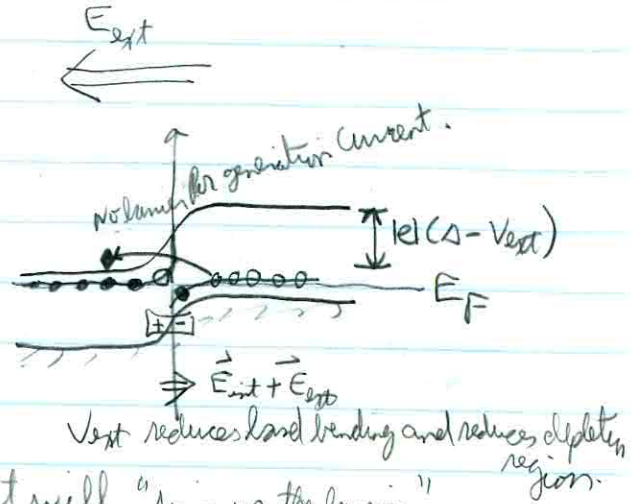 E_ext
No barrier for generation current.
|e|(Δ - V_ext)
E_F
+ -
E_int + E_ext
Vext reduces band bending and reduces depletion
region.
"the barrier"